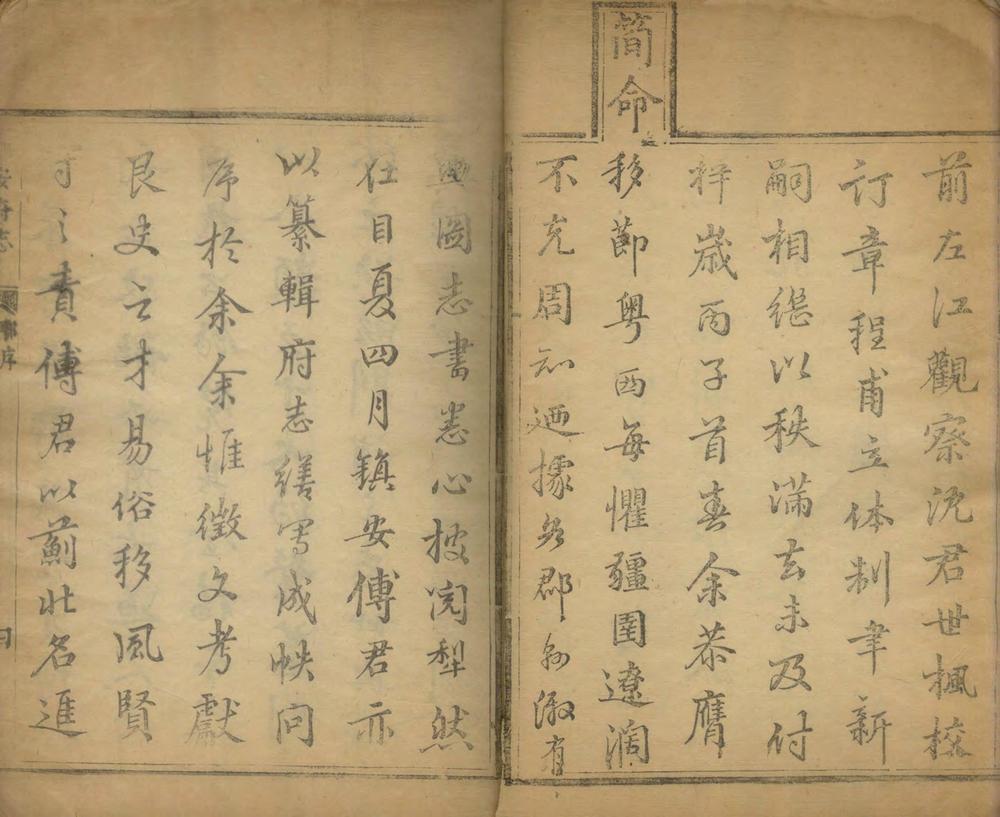 前左江觀察沈君世楓校
订章程甫立体制聿新
嗣相继以秩满去未及付
梓歲丙子首春余恭膺
簡命
移節粤西每懼疆圉遼濶
不克周知迺據各郡縣繳有
輿圖志書悉心披阅犁然
在目夏四月鎮安傅君亦
以纂輯府志繕写成帙问
序於余余惟徵文考獻
良史之才易俗移風賢
司之責傅君以薊北名進
安府志
序